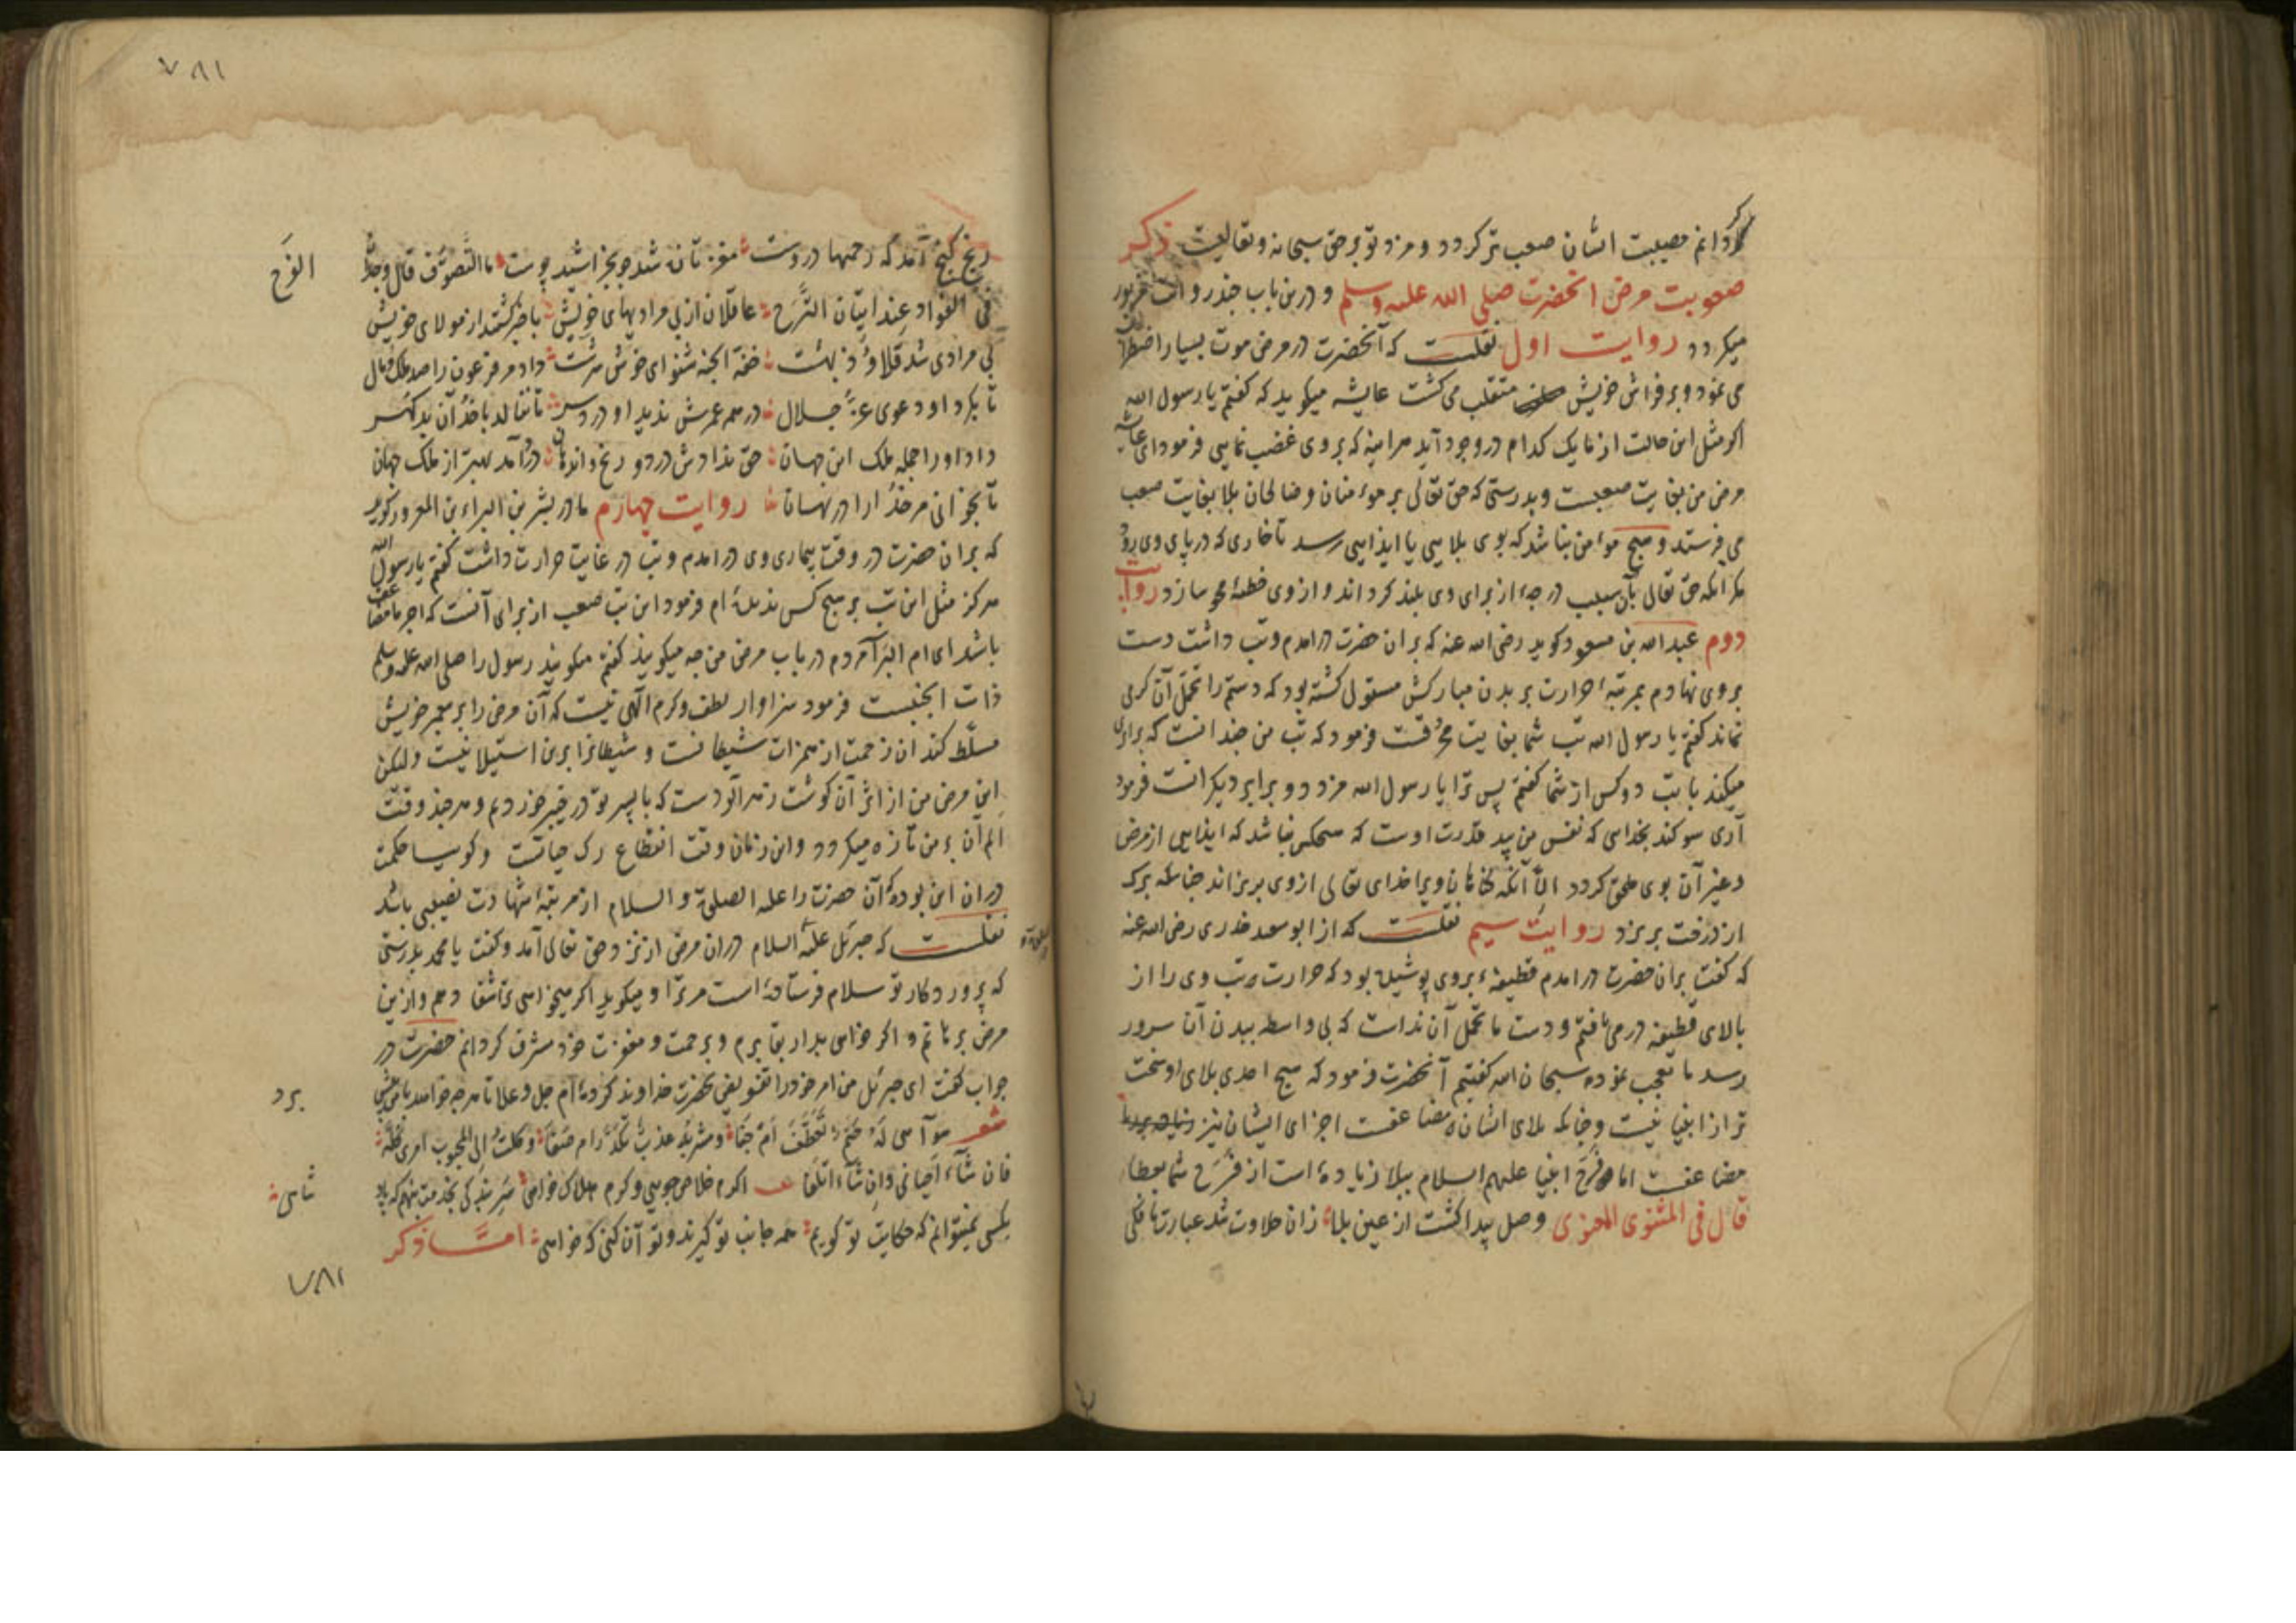 گردانم مصیبت ایشان صعب تر کردد و مزد تو بر حق سبحانه و تعالیست ذکر
صعوبت مرض آنحضرت صلی الله علیه وسلم و درین باب چند روایت مزبور
میکردد روایت اول نقلست که آنحضرت در مرض موت بسیار اضطراب
می نمود و بر فراش خویش متقلب می کشت عایشه میکوید که کفتم یا رسول الله
اکر مثل این حالت از ما یک کدام در وجود آید هر آینه که بر وی غضب نمایی فرمود ای عایشه
مرض من بغایت صعبست و بدرستی که حق تعالی بر مؤمنان و صالحان بلا بغایت صعب
می فرستد و هیچ مؤمن نباشد که بوی بلایی یا ایذایی رسد تا خاری که در پای وی رود
مکر آنکه حق تعالی بآن سبب درجهٔ از برای وی بلند کرداند و از وی خطیهٔ محو سازد روایت
دوم عبدالله بن مسعود کوید رضی الله عنه که بر آن حضرت درآمدم و تب داشت دست
بر وی نهادم بمرتبهٔ حرارت بر بدن مبارکش مستولی کشته بود که دستم را تحمل آن کرمی
نماند کفتم یا رسول الله تب شما بغایت محرقست فرمود که تب من چندانست که برابری
میکند با تب دو کس از شما کفتم پس ترا یا رسول الله مزد دو برابر دیکرانست فرمود
آری سوکند بخدایی که نفس من بید قدرت اوست که هیچکس نباشد که ایذایی از مرض
و غیر آن بوی ملحق کردد الّا آنکه کناهان ویرا خدای تعالی از وی بریزاند چنانکه برک
از درخت بریزد روایت سیم نقلست که از ابو سعید خدری رضی الله عنه
که کفت بر آن حضرت درآمدم قطیفهٔ بر وی پوشیده بود که حرارت تب وی را از
بالای قطیفه درمی یافتم و دست ما تحمل آن نداشت که بی واسطه ببدن آن سرور
رسد ما تعجب نموده سبحان الله کفتیم آنحضرت فرمود که هیچ احدی بلای او سخت
تر از انبیا نیست و چنانکه بلای ایشان مضاعفست اجرای ایشان نیز
مضاعفست اما فرح انبیا علیهم السلام ببلا زیاده است از فرح شما بعطا
قال فی المثنوی المعنوی وصل پیدا کشت از عین بلا زان حلاوت شد عبارت ما قلی
٧٨١
رنج کنج آمد که رحمتها دروست مغز تازه شد چو بخراشید پوست ما التصوف قال وجد
الفرح
فی الفواد عند اتیان الترح عاقلان از بی مرادیهای خویش با خبر کشتند از مولای خویش
بی مرادی شد قلاوز بهشت حفت الجنه شنو ای خوش سرشت داد مر فرعون را صد ملک و مال
تا بکرد او دعوی عز و جلال در همه عمرش ندید او درد سر تا ننالد با خدا آن بد کهر
داد او را جمله ملک این جهان حق ندادش درد و رنج و اندهان درد آمد بهتر از ملک جهان
تا بخوانی مر خدا را در نهان روایت چهارم مادر بشر بن البراء بن المعرور کوید
که بر آن حضرت در وقت بیماری وی درآمدم و تب در غایت حرارت داشت کفتم یا رسول الله
هرکز مثل این تب بر هیچ کس ندیدهٔ ام فرمود این تب صعب از برای آنست که اجر ما مضاعف
باشد ای ام البراء مردم در باب مرض من چه میکویند کفتم میکویند رسول را صلی الله علیه وسلم
ذات الجنبست فرمود سزاوار لطف و کرم الهی نیست که آن مرض را بر پیغمبر خویش
مسلّط کند آن زحمت از همزات شیطانست و شیطانرا بر من استیلا نیست ولیکن
این مرض من از اثر آن کوشت زهر آلودست که با پسر تو در خیبر خوردیم و هر چند وقت
الم آن بر من تازه میکردد و این زمان وقت انقطاع رک حیاتست و کوییا حکمت
در آن این بوده که آن حضرت را علیه الصلوة و السلام از مرتبهٔ شهادت نصیبی باشد
نقلست که جبرئیل علیه السلام در آن مرض از نزد حق تعالی آمد و کفت یا محمد بدرستی
که پروردکار تو سلام فرستاده است مر ترا و میکوید اکر میخواهی تا شفا دهم و ازین
مرض برهانم و اکر خواهی بدار بقا برم و برحمت و مغفرت خود مشرف کردانم حضرت در
جواب کفت ای جبرئیل من امر خود را تفویض بحضرت خداوند کردهٔ ام جل و علا تا هر چه خواهد با من
برد
شعر
فان شاء احیانی وان شاء اتلفا اکرم خلاص جویی و کرم هلاک خواهی سر بندکی بخدمت بنهم که پاد
شاهی
بکسی نمیتوانم که حکایت تو کویم همه جانب تو کیرند و تو آن کنی که خواهی امّا ذکر
٧٨١